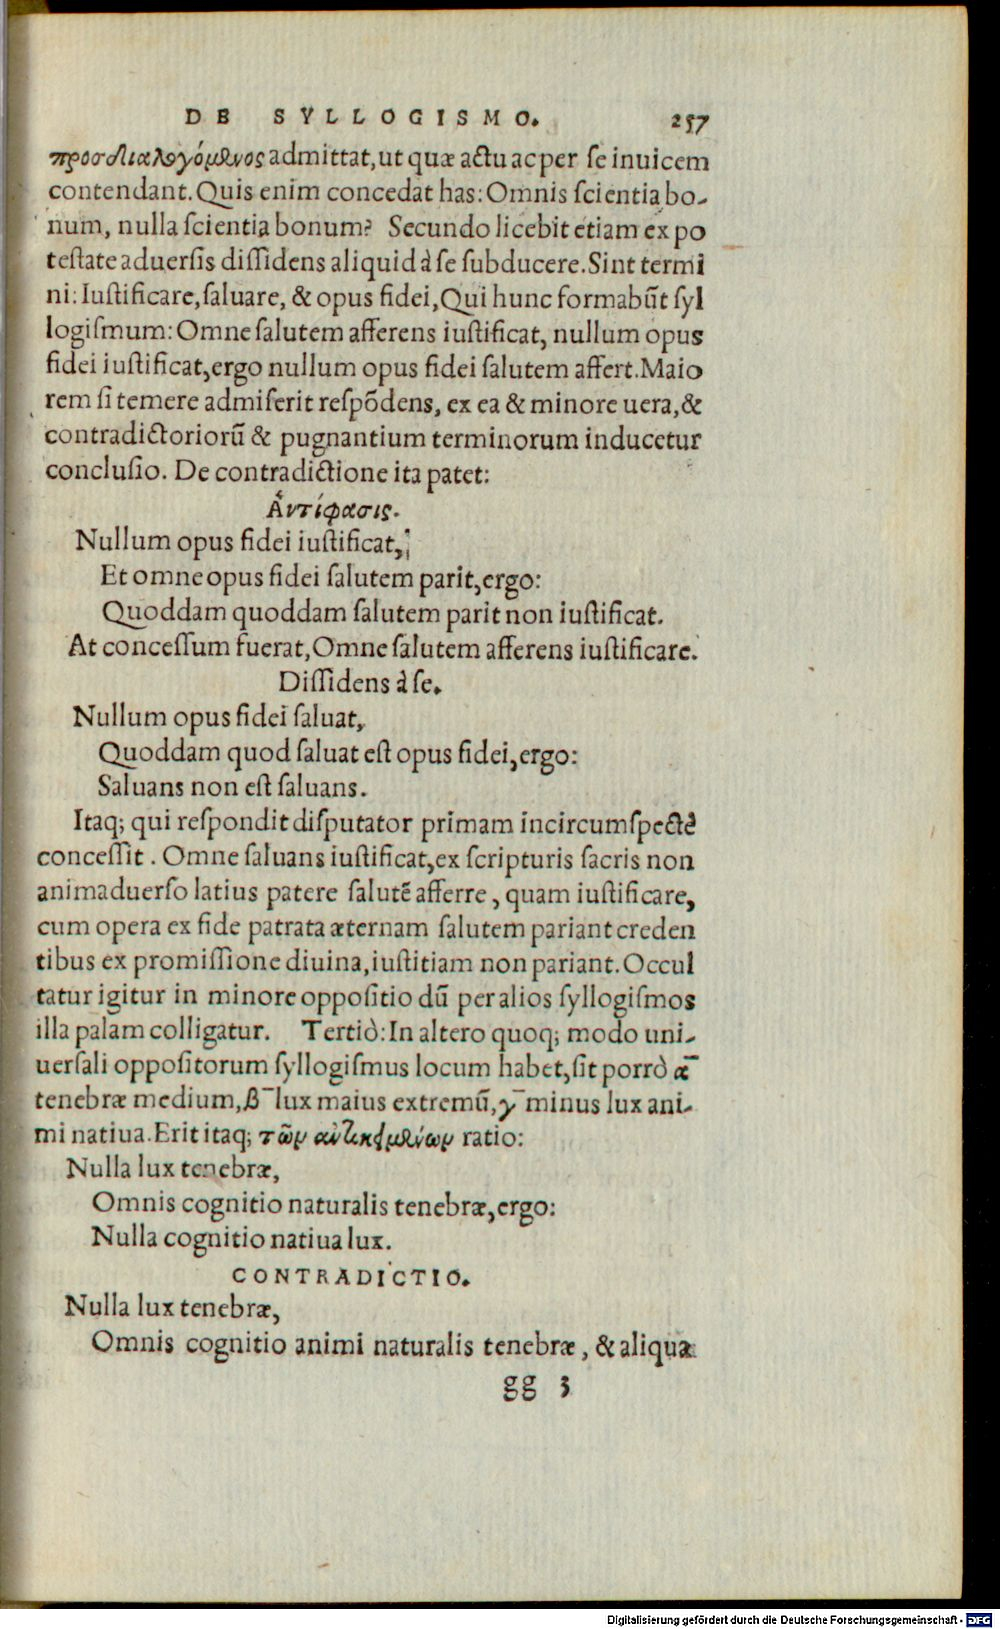 DE SYLLOGISMO. 257
προσδιαλεγόμενος admittat, ut quæ actu ac per se inuicem
contendant. Quis enim concedat has: Omnis scientia bo-
num, nulla scientia bonum? Secundo licebit etiam ex po
testate aduersis dissidens aliquid à se subducere. Sint termi
ni: Iustificare, saluare, & opus fidei, Qui hunc formabūt syl
logismum: Omne salutem afferens iustificat, nullum opus
fidei iustificat, ergo nullum opus fidei salutem affert. Maio
rem si temere admiserit respōdens, ex ea & minore uera, &
contradictoriorū & pugnantium terminorum inducetur
conclusio. De contradictione ita patet:
Ἀντίφασις.
Nullum opus fidei iustificat,
Et omne opus fidei salutem parit, ergo:
Quoddam quoddam salutem parit non iustificat.
At concessum fuerat, Omne salutem afferens iustificare.
Dissidens à se.
Nullum opus fidei saluat,
Quoddam quod saluat est opus fidei, ergo:
Saluans non est saluans.
Itaq; qui respondit disputator primam incircumspectè
concessit. Omne saluans iustificat, ex scripturis sacris non
animaduerso latius patere salutē afferre, quam iustificare,
cum opera ex fide patrata æternam salutem pariant creden
tibus ex promissione diuina, iustitiam non pariant. Occul
tatur igitur in minore oppositio dū per alios syllogismos
illa palam colligatur. Tertiò: In altero quoq; modo uni-
uersali oppositorum syllogismus locum habet, sit porrò α̅
tenebræ medium, β̅ lux maius extremū, γ̅ minus lux ani-
mi natiua. Erit itaq; τῶν ἀντικειμένων ratio:
Nulla lux tenebræ,
Omnis cognitio naturalis tenebræ, ergo:
Nulla cognitio natiua lux.
CONTRADICTIO.
Nulla lux tenebræ,
Omnis cognitio animi naturalis tenebræ, & aliqua
gg 3
Digitalisierung gefördert durch die Deutsche Forschungsgemeinschaft - DFG